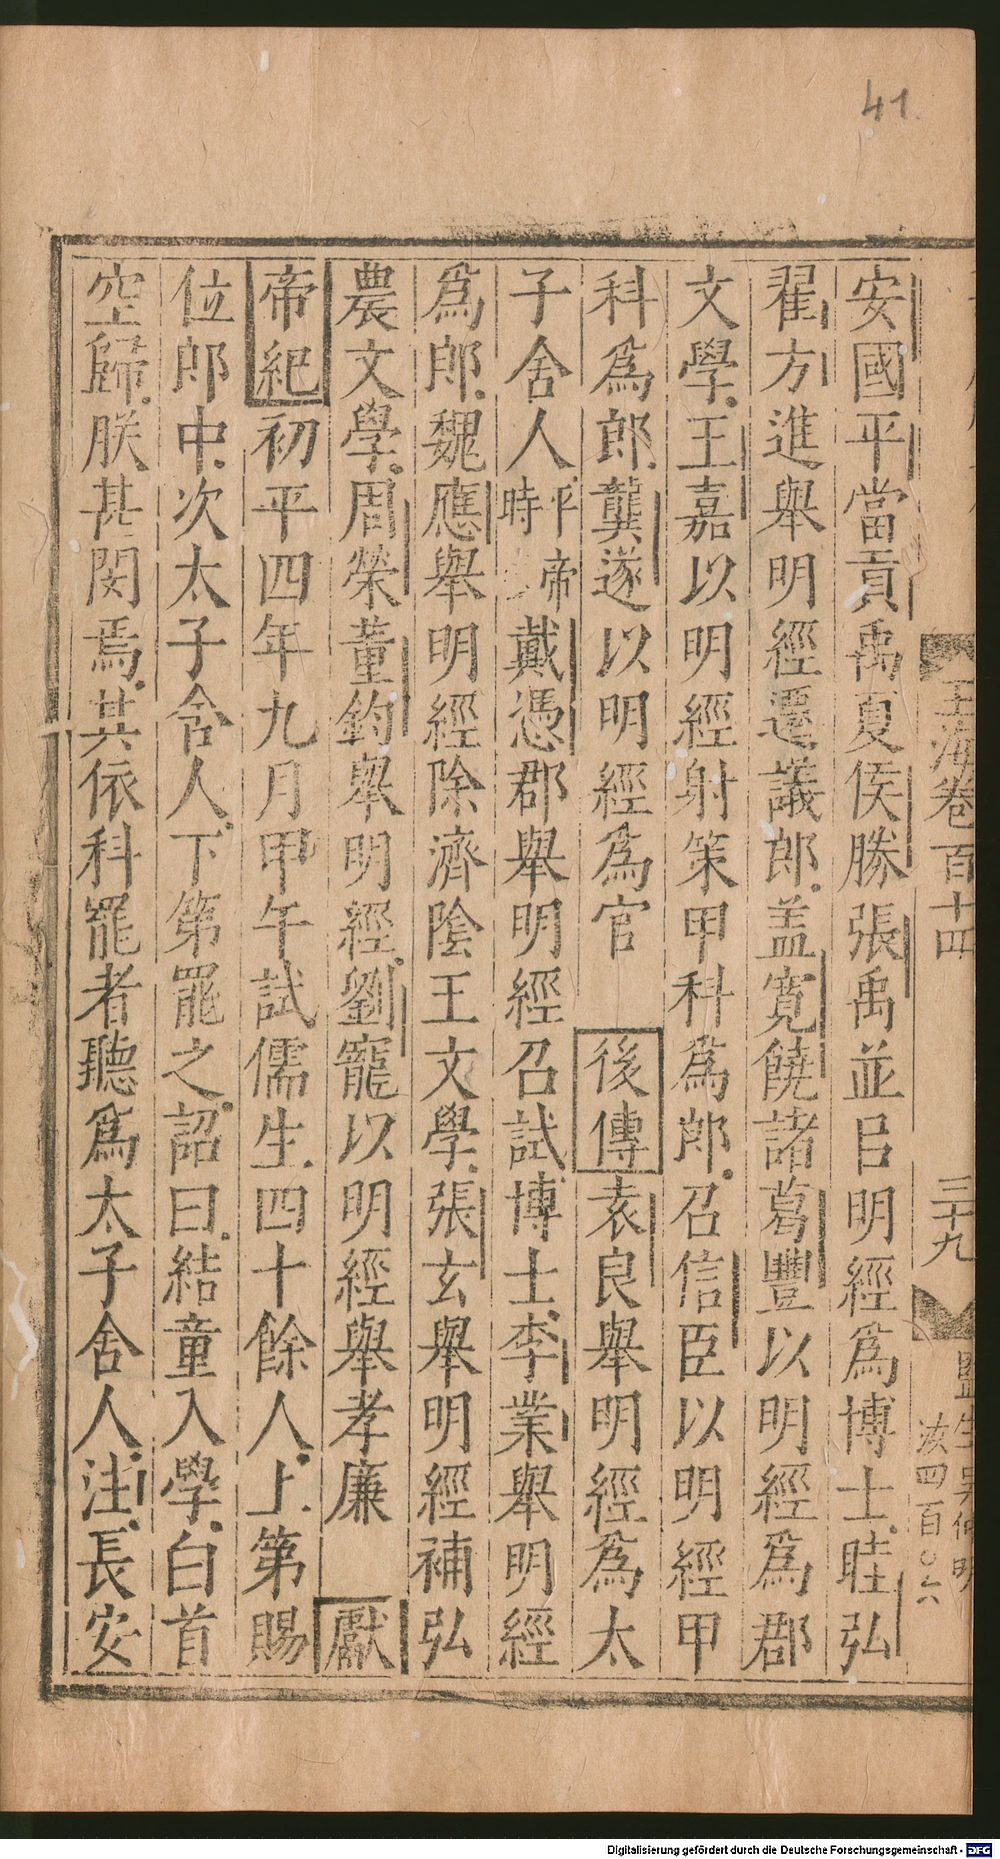 41
玉海卷百十四
三十九
監生吳仲明
汝四百〇六
安國平當貢禹夏侯勝張禹並目明經爲博士眭弘
翟方進舉明經遷議郎蓋寬饒諸葛豐以明經爲郡
文學王嘉以明經射策甲科爲郎召信臣以明經甲
科爲郎龔遂以明經爲官 後傳袁良舉明經爲太
子舍人平帝時戴憑郡舉明經召試博士李業舉明經
爲郎魏應舉明經除濟陰王文學張玄舉明經補弘
農文學周榮董鈞舉明經劉寵以明經舉孝廉 獻
帝紀初平四年九月甲午試儒生四十餘人上第賜
位郎中次太子舍人下第罷之詔曰結童入學白首
空歸朕甚閔焉其依科罷者聽爲太子舍人注長安
Digitalisierung gefördert durch die Deutsche Forschungsgemeinschaft - DFG